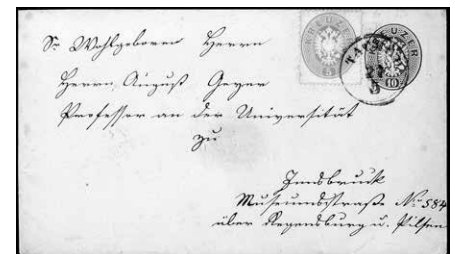 Sr Wohlgeboren Herrn
Herrn August Geyer
Professor an der Universität
zu
Innsbruck
Museumsstraße No 584
über Regensburg u. Pilsen
KREUZER
5
KREUZER
10